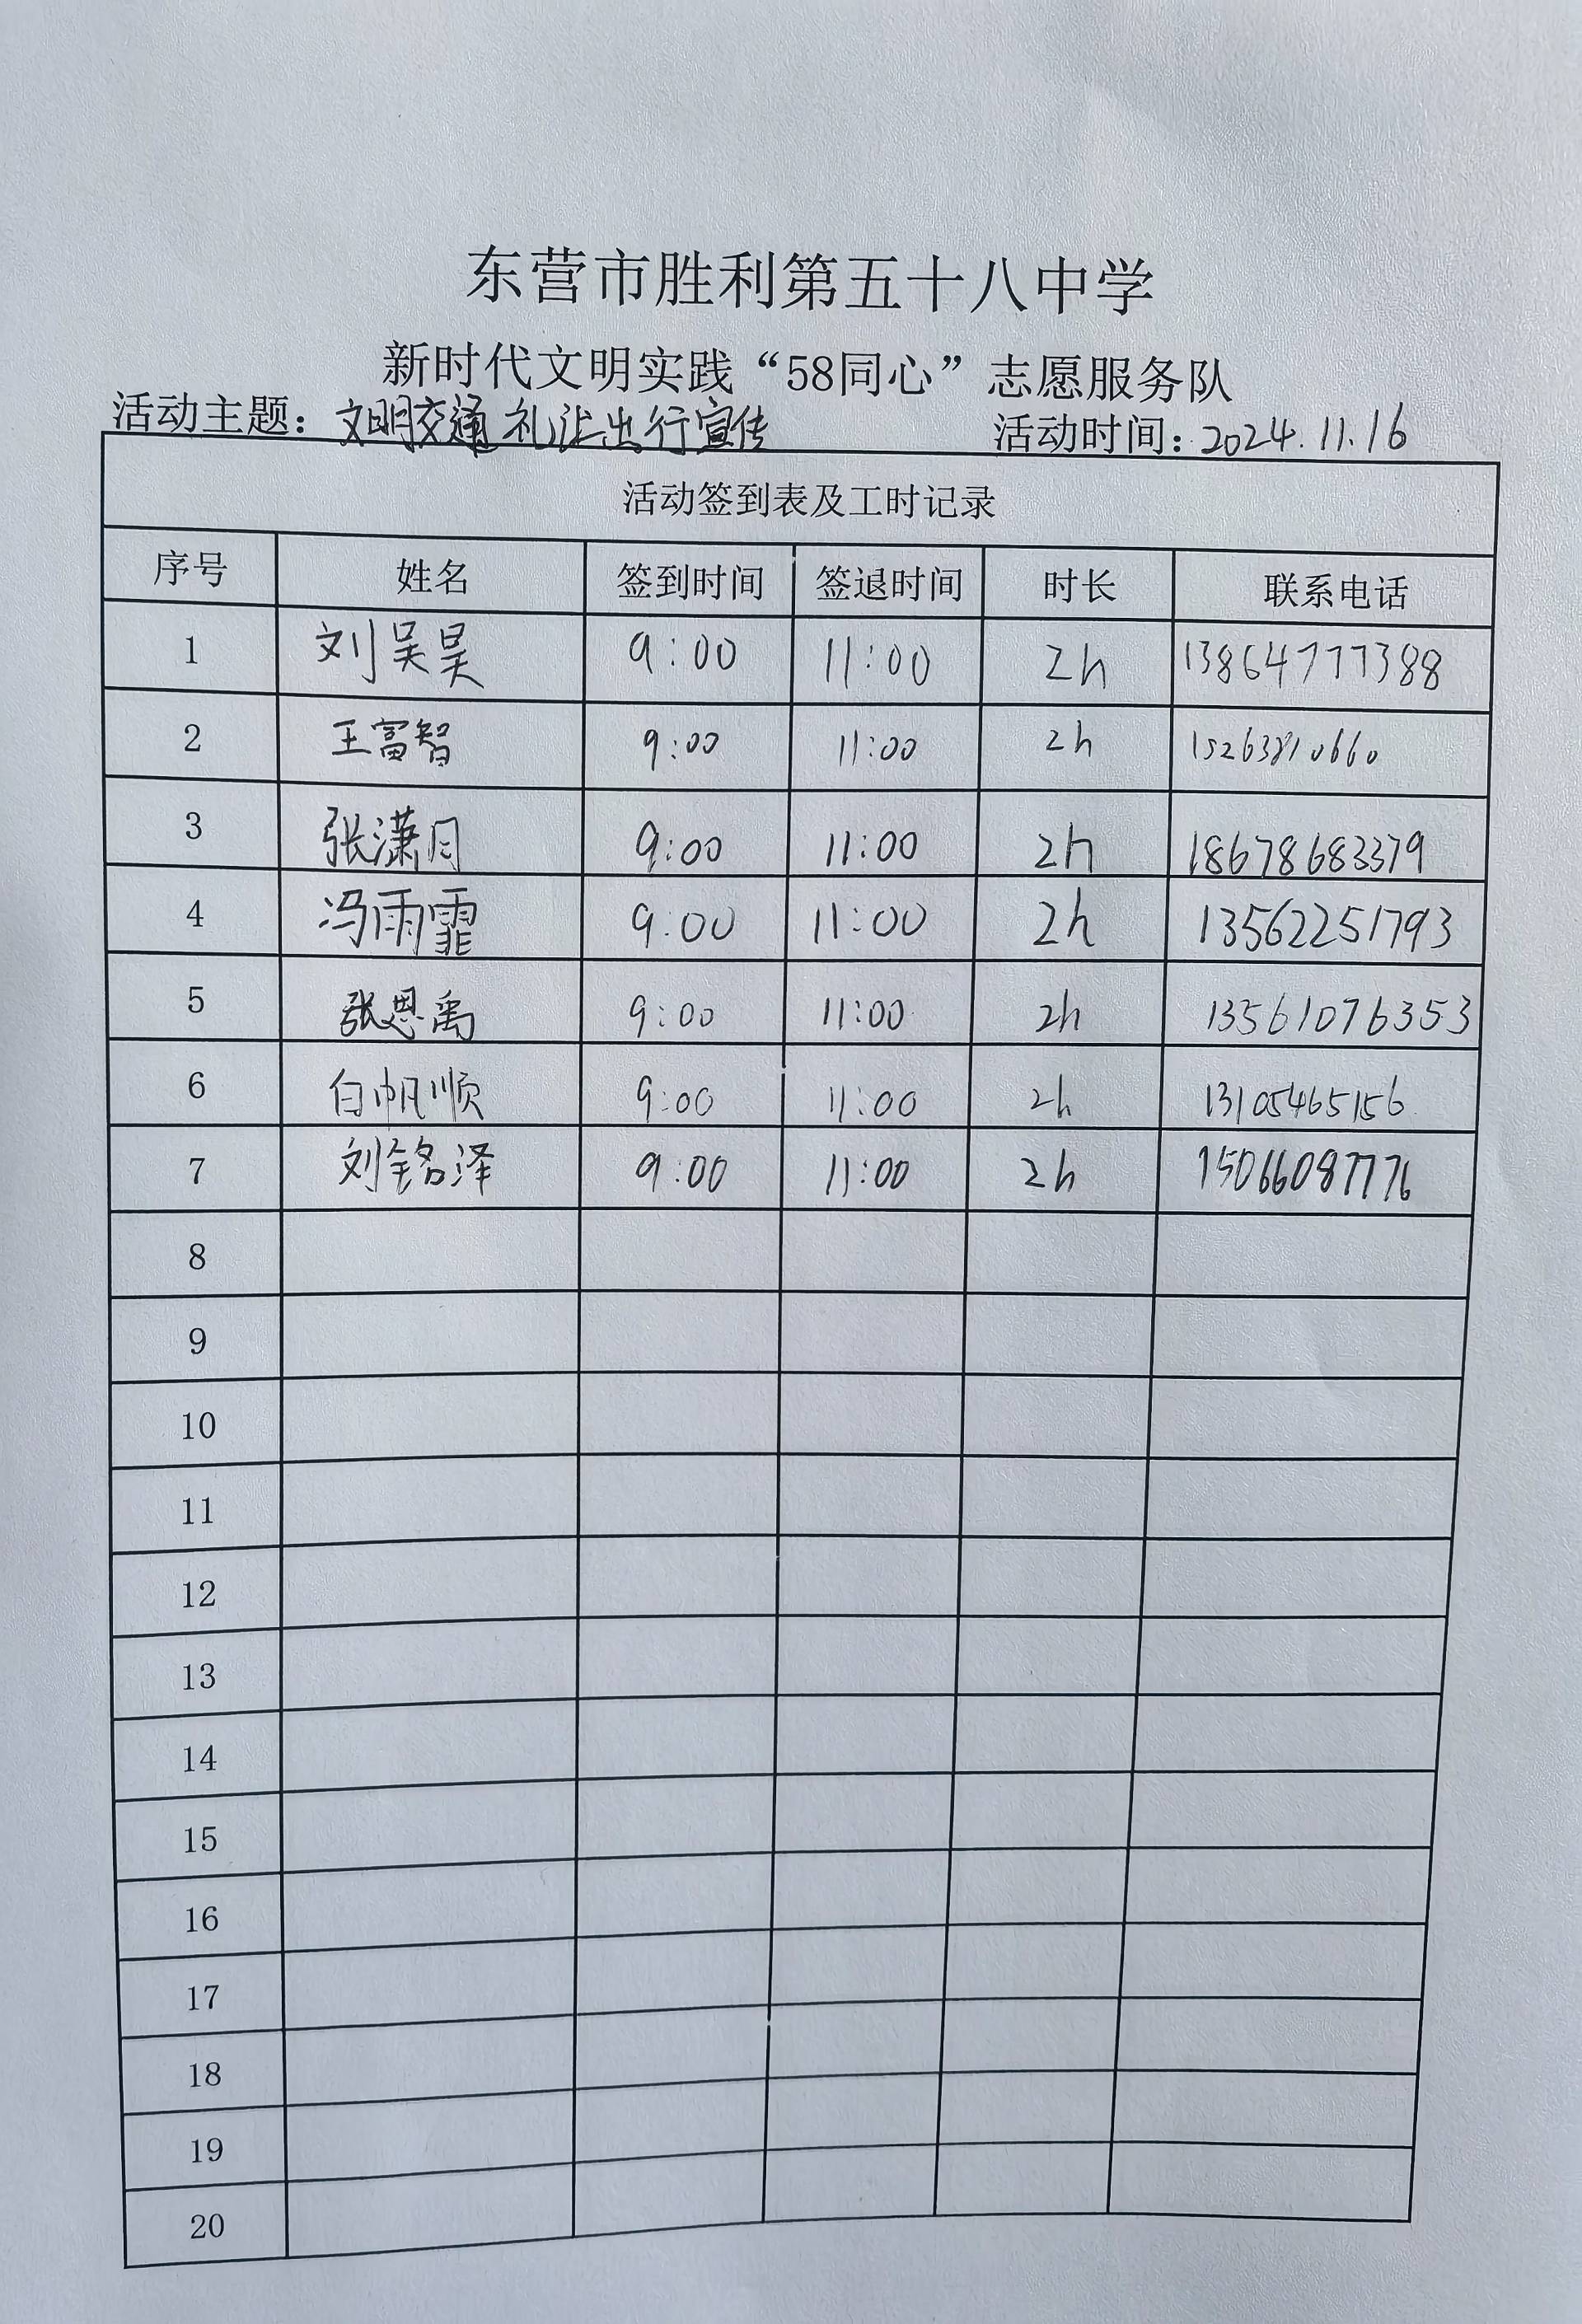 东营市胜利第五十八中学
新时代文明实践“58同心”志愿服务队
活动主题：文明交通 礼让出行宣传 活动时间：2024.11.16
活动签到表及工时记录
序号 姓名 签到时间 签退时间 时长 联系电话
1 刘昊昊 9:00 11:00 2h 13864777388
2 王富智 9:00 11:00 2h 15263810660
3 张潇月 9:00 11:00 2h 18678683379
4 冯雨霏 9:00 11:00 2h 13562251793
5 张恩禹 9:00 11:00 2h 13561076353
6 白帆顺 9:00 11:00 2h 13105465156
7 刘铭泽 9:00 11:00 2h 15066087776
8
9
10
11
12
13
14
15
16
17
18
19
20